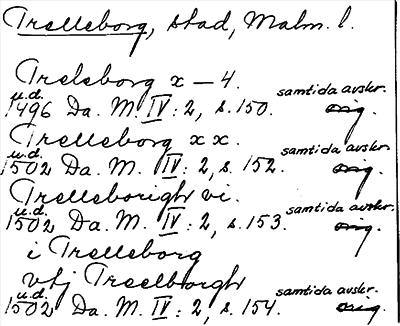 Trelleborg, stad, Malm. l.
Trelsborg x – 4.
u.d. samtida avskr.
1496 Da. M. IV: 2, s. 150. orig.
Trelleborg x x.
u.d. samtida avskr.
1502 Da. M. IV: 2, s. 152. orig.
Trelleborigh vi.
u.d. samtida avskr.
1502 Da. M. IV: 2, s. 153. orig.
i Trelleborg
vtj Treelborgh
u.d. samtida avskr.
1502 Da. M. IV: 2, s. 154. orig.